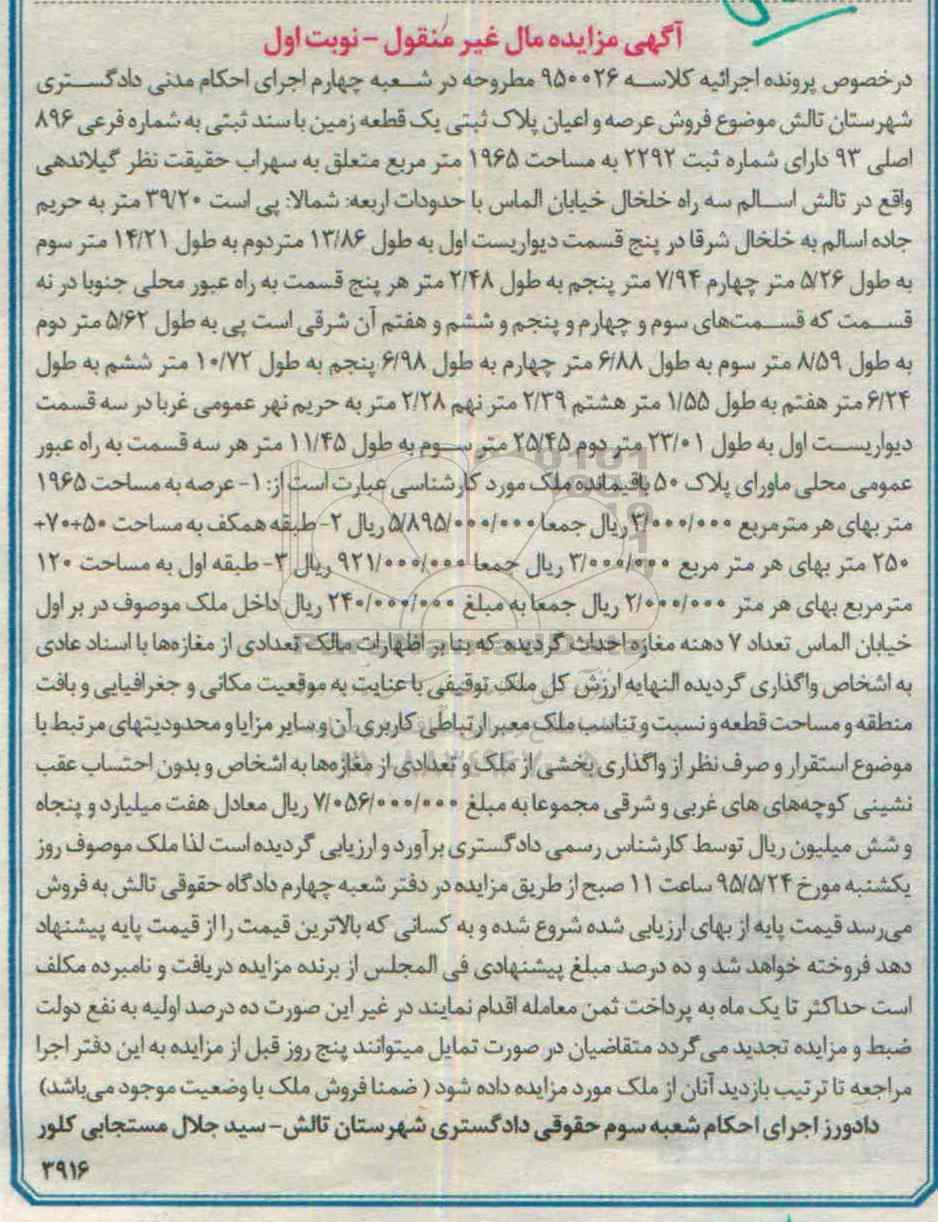 آگهی مزایده مال غیر منقول - نوبت اول
درخصوص پرونده اجرائیه کلاسه ۹۵۰۰۲۶ مطروحه در شعبه چهارم اجرای احکام مدنی دادگستری
شهرستان تالش موضوع فروش عرصه و اعیان پلاک ثبتی یک قطعه زمین با سند ثبتی به شماره فرعی ۸۹۶
اصلی ۹۳ دارای شماره ثبت ۲۲۹۲ به مساحت ۱۹۶۵ متر مربع متعلق به سهراب حقیقت نظر گیلاندهی
واقع در تالش اسالم سه راه خلخال خیابان الماس با حدودات اربعه: شمالا: پی است ۳۹/۲۰ متر به حریم
جاده اسالم به خلخال شرقا در پنج قسمت دیواریست اول به طول ۱۳/۸۶ متر دوم به طول ۱۴/۲۱ متر سوم
به طول ۵/۲۶ متر چهارم ۷/۹۴ متر پنجم به طول ۲/۴۸ متر هر پنج قسمت به راه عبور محلی جنوبا در نه
قسمت که قسمت‌های سوم و چهارم و پنجم و ششم و هفتم آن شرقی است پی به طول ۵/۶۲ متر دوم
به طول ۸/۵۹ متر سوم به طول ۶/۸۸ متر چهارم به طول ۶/۹۸ پنجم به طول ۱۰/۷۲ متر ششم به طول
۶/۲۴ متر هفتم به طول ۱/۵۵ متر هشتم ۲/۳۹ متر نهم ۲/۲۸ متر به حریم نهر عمومی غربا در سه قسمت
دیواریست اول به طول ۲۳/۰۱ متر دوم ۲۵/۴۵ متر سوم به طول ۱۱/۴۵ متر هر سه قسمت به راه عبور
عمومی محلی ماورای پلاک ۵۰ باقیمانده ملک مورد کارشناسی عبارت است از: ۱- عرصه به مساحت ۱۹۶۵
متر بهای هر مترمربع ۳/۰۰۰/۰۰۰ ریال جمعا ۵/۸۹۵/۰۰۰/۰۰۰ ریال ۲- طبقه همکف به مساحت ۵۰+۷۰+
۲۵۰ متر بهای هر متر مربع ۳/۰۰۰/۰۰۰ ریال جمعا ۹۲۱/۰۰۰/۰۰۰ ریال ۳- طبقه اول به مساحت ۱۲۰
مترمربع بهای هر متر ۲/۰۰۰/۰۰۰ ریال جمعا به مبلغ ۲۴۰/۰۰۰/۰۰۰ ریال داخل ملک موصوف در بر اول
خیابان الماس تعداد ۷ دهنه مغازه احداث گردیده که بنا بر اظهارات مالک تعدادی از مغازه‌ها با اسناد عادی
به اشخاص واگذاری گردیده النهایه ارزش کل ملک توقیفی با عنایت به موقعیت مکانی و جغرافیایی و بافت
منطقه و مساحت قطعه و نسبت و تناسب ملک معبر ارتباطی کاربری آن و سایر مزایا و محدودیتهای مرتبط با
موضوع استقرار و صرف نظر از واگذاری بخشی از ملک و تعدادی از مغازه‌ها به اشخاص و بدون احتساب عقب
نشینی کوچه‌های های غربی و شرقی مجموعا به مبلغ ۷/۰۵۶/۰۰۰/۰۰۰ ریال معادل هفت میلیارد و پنجاه
و شش میلیون ریال توسط کارشناس رسمی دادگستری برآورد و ارزیابی گردیده است لذا ملک موصوف روز
یکشنبه مورخ ۹۵/۵/۲۴ ساعت ۱۱ صبح از طریق مزایده در دفتر شعبه چهارم دادگاه حقوقی تالش به فروش
می‌رسد قیمت پایه از بهای ارزیابی شده شروع شده و به کسانی که بالاترین قیمت را از قیمت پایه پیشنهاد
دهد فروخته خواهد شد و ده درصد مبلغ پیشنهادی فی المجلس از برنده مزایده دریافت و نامبرده مکلف
است حداکثر تا یک ماه به پرداخت ثمن معامله اقدام نمایند در غیر این صورت ده درصد اولیه به نفع دولت
ضبط و مزایده تجدید می‌گردد متقاضیان در صورت تمایل میتوانند پنج روز قبل از مزایده به این دفتر اجرا
مراجعه تا ترتیب بازدید آنان از ملک مورد مزایده داده شود ( ضمنا فروش ملک با وضعیت موجود می‌باشد)
دادورز اجرای احکام شعبه سوم حقوقی دادگستری شهرستان تالش- سید جلال مستجابی کلور
۳۹۱۶